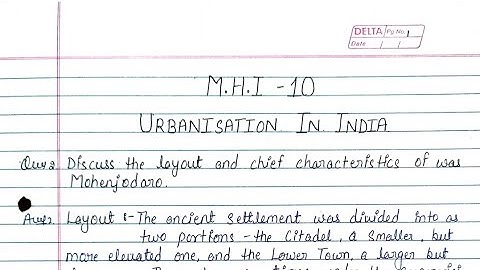 DELTA Pg No. 1
Date / /
M.H.I - 10
URBANISATION IN INDIA
Discuss the layout and chief characteristics of was
Mohenjodaro.
Layout :- The ancient settlement was divided into as
two portions - the Citadel, a smaller, but
more elevated one, and the Lower Town, a larger but